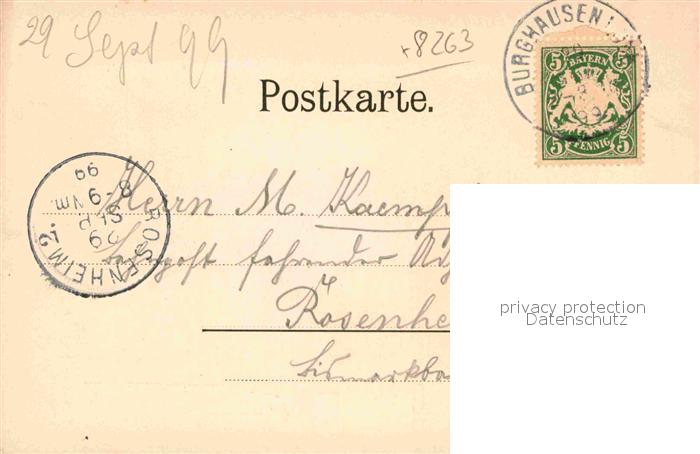 29 Sept 99
+8263
BURGHAUSEN
5 5
BAYERN
PFENNIG
5 5
Postkarte.
ROSENHEIM 2
29
SEP
8-9 NM.
99
Herrn M. Kaemp
fahrender
Rosenhe
privacy protection
Datenschutz